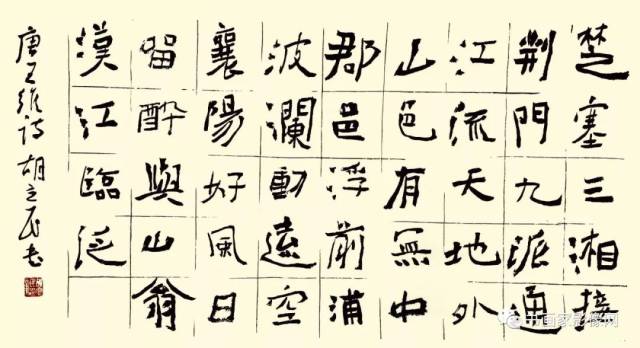 楚塞三湘接
荆門九派通
江流天地外
山色有無中
郡邑浮前浦
波瀾動遠空
襄陽好風日
留醉與山翁
漢江臨泛
唐王維詩胡立民书
书画家影像网